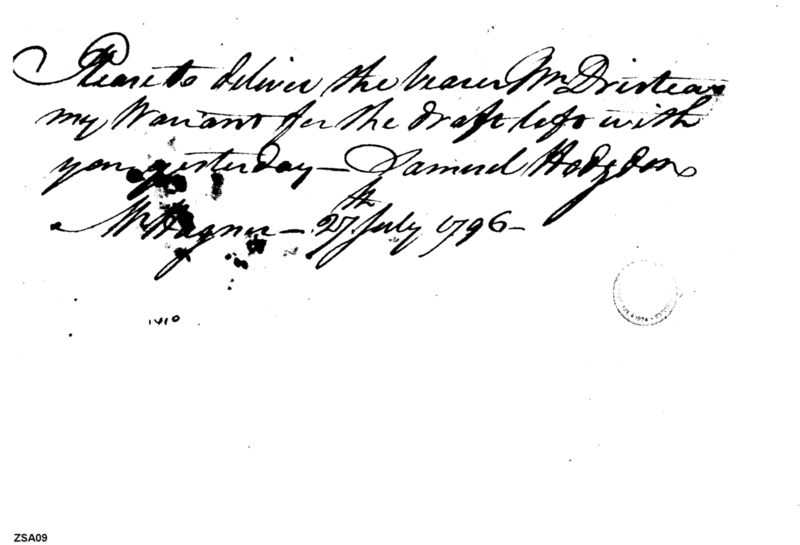 Please to deliver the bearer Mr
my Warrant for the draft left with
you yesterday — Samuel Hodgdon
Mr Hagner — 27th July 1796 —
1410
ZSA09